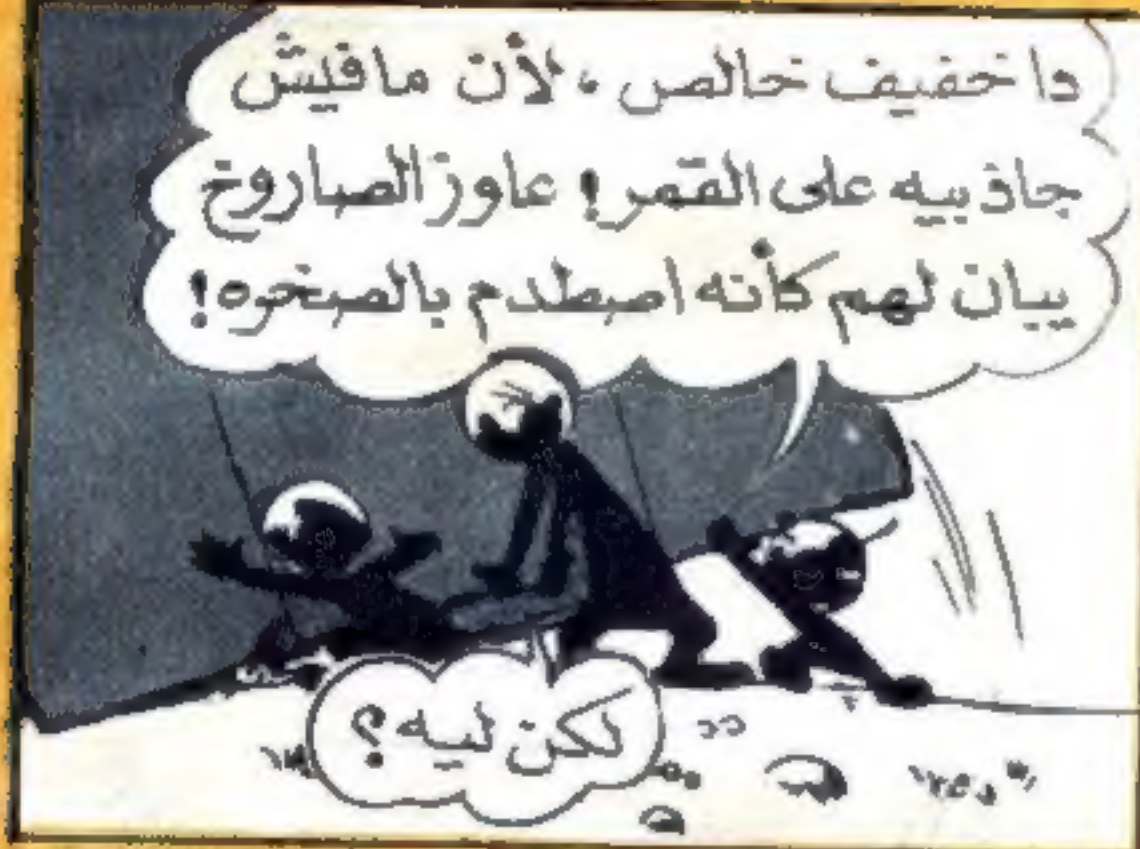 دا خفيف خالص ، لأن مافيش
جاذبيه على القمر! عاوز الصاروخ
يبان لهم كأنه اصطدم بالصخره!
لكن ليه ؟